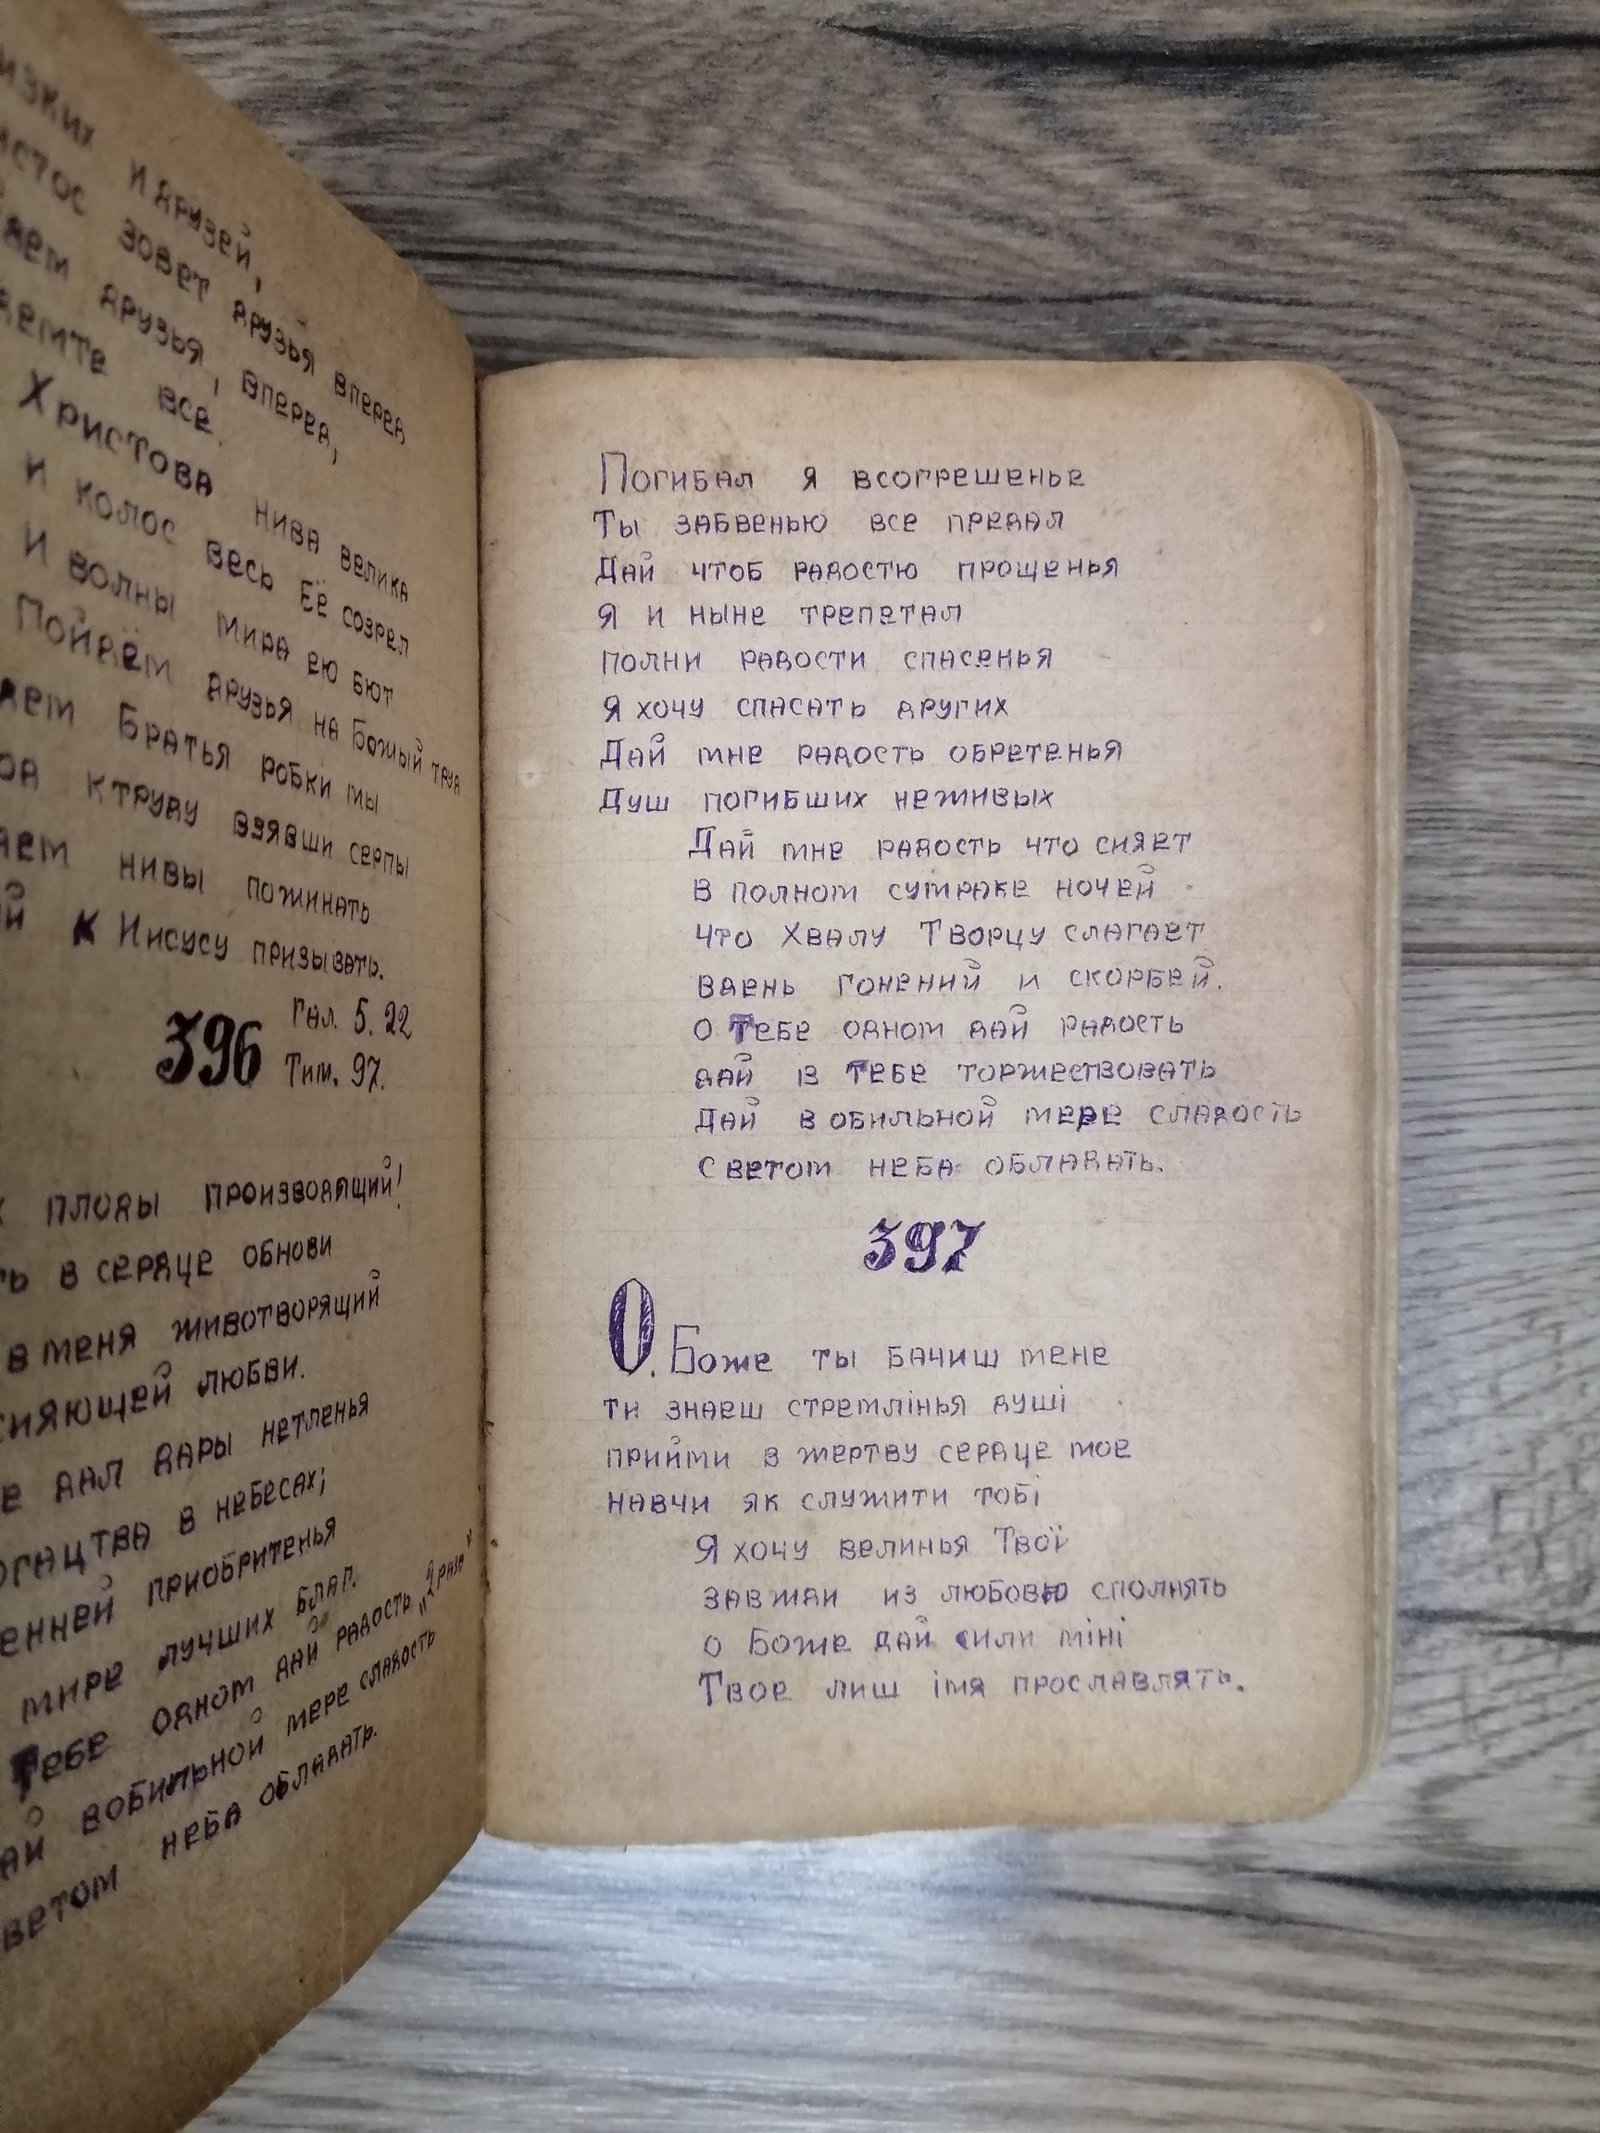 и друзей,
зовет друзья вперед
друзья, вперед,
все.
Христова нива велика
и колос весь Её созрел
и волны мира ею бют
Пойдём друзья на Божый труд
Братья робки мы
ктруду взявши серпы
нивы пожинать
к Иисусу призывать.
396 Гал. 5. 22
Тим. 97.
плоды производящий!
в сердце обнови
в меня животворящий
любви.
дал дары нетленья
в небесах;
приобритенья
мире лучших благ.
Тебе одном дай радость „2 раза"
вобильной мере сладость
неба обладать.
Погибал я всогрешенье
Ты забвенью все предал
Дай чтоб радостю прощенья
Я и ныне трепетал
полни радости спасенья
Я хочу спасать других
Дай мне радость обретенья
Душ погибших неживых
Дай мне радость что сияет
в полном сумраке ночей
что Хвалу Творцу слагает
вдень гонений и скорбей.
о Тебе одном дай радость
дай в Тебе торжествовать
Дай в обильной мере сладость
Светом неба обладать.
397
О. Боже ты бачиш мене
ти знаеш стремлінья душі
прийми в жертву сердце мое
навчи як служити тобі
Я хочу велинья Твої
завжди из любовю сполнять
о Боже дай сили міні
Твое лиш імя прославлять.